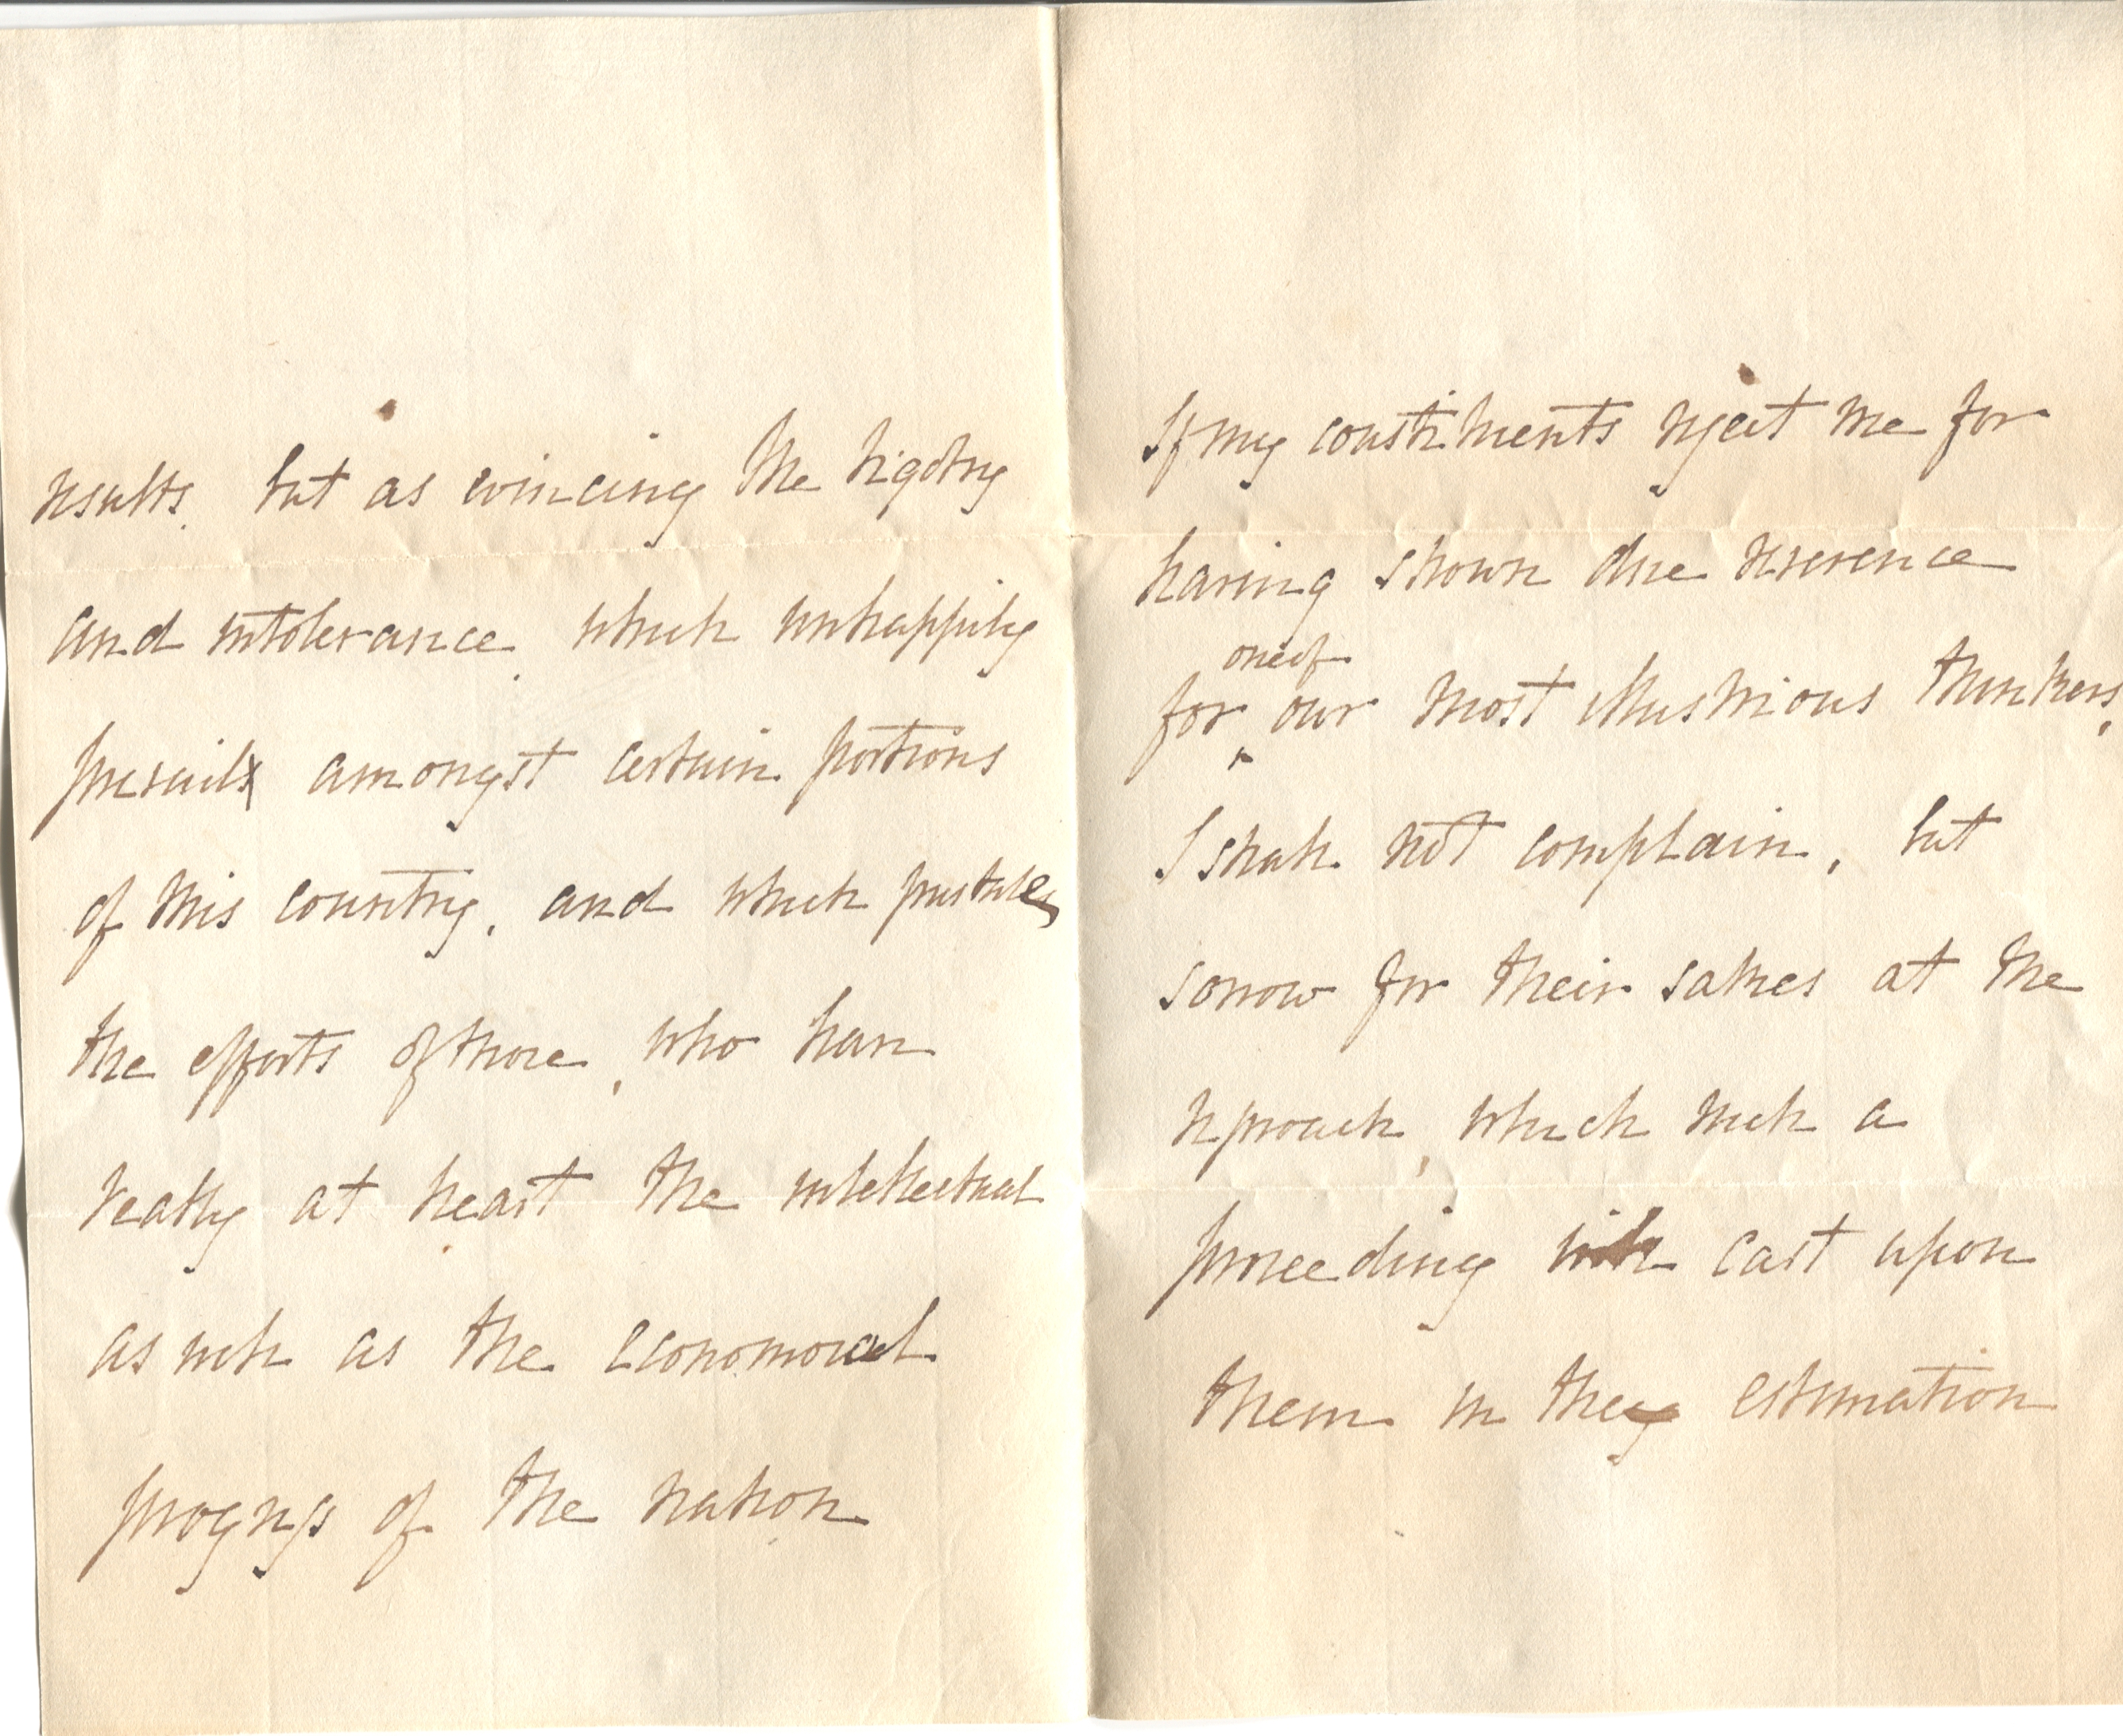 results. but as evincing the bigotry
and intolerance, which unhappily
prevails amongst certain portions
of this country, and which frustrates
the efforts of those, who have
really at heart the intellectual
as well as the economical
progress of the nation
If my constituents reject me for
having shown due reverence
one of
for our most illustrious thinkers,
I shall not complain, but
sorrow for their sakes at the
reproach, which such a
proceeding will cast upon
them in the estimation